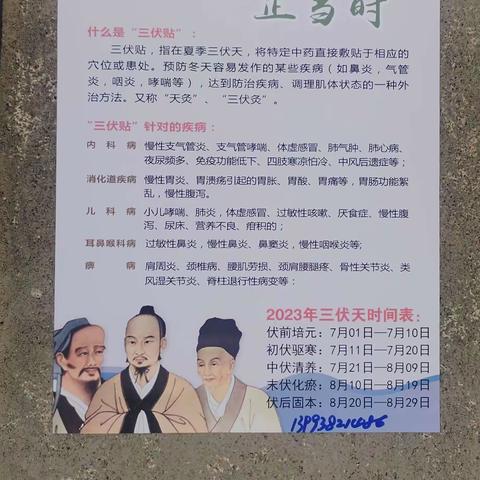 正当时
什么是“三伏贴”：
三伏贴，指在夏季三伏天，将特定中药直接敷贴于相应的
穴位或患处。预防冬天容易发作的某些疾病（如鼻炎，气管
炎，咽炎，哮喘等），达到防治疾病、调理肌体状态的一种外
治方法。又称“天灸”、“三伏灸”。
“三伏贴”针对的疾病：
内科病 慢性支气管炎、支气管哮喘、体虚感冒、肺气肿、肺心病、
夜尿频多、免疫功能低下、四肢寒凉怕冷、中风后遗症等；
消化道疾病 慢性胃炎、胃溃疡引起的胃胀、胃酸、胃痛等，胃肠功能絮
乱，慢性腹泻。
儿科病 小儿哮喘、肺炎，体虚感冒、过敏性咳嗽、厌食症、慢性腹
泻、尿床、营养不良、疳积的；
耳鼻喉科病 过敏性鼻炎，慢性鼻炎、鼻窦炎，慢性咽喉炎等；
痹病 肩周炎、颈椎病、腰肌劳损、颈肩腰腿疼、骨性关节炎、类
风湿关节炎、脊柱退行性病变等；
2023年三伏天时间表：
伏前培元：7月01日—7月10日
初伏驱寒：7月11日—7月20日
中伏清养：7月21日—8月09日
末伏化瘀：8月10日—8月19日
伏后固本：8月20日—8月29日